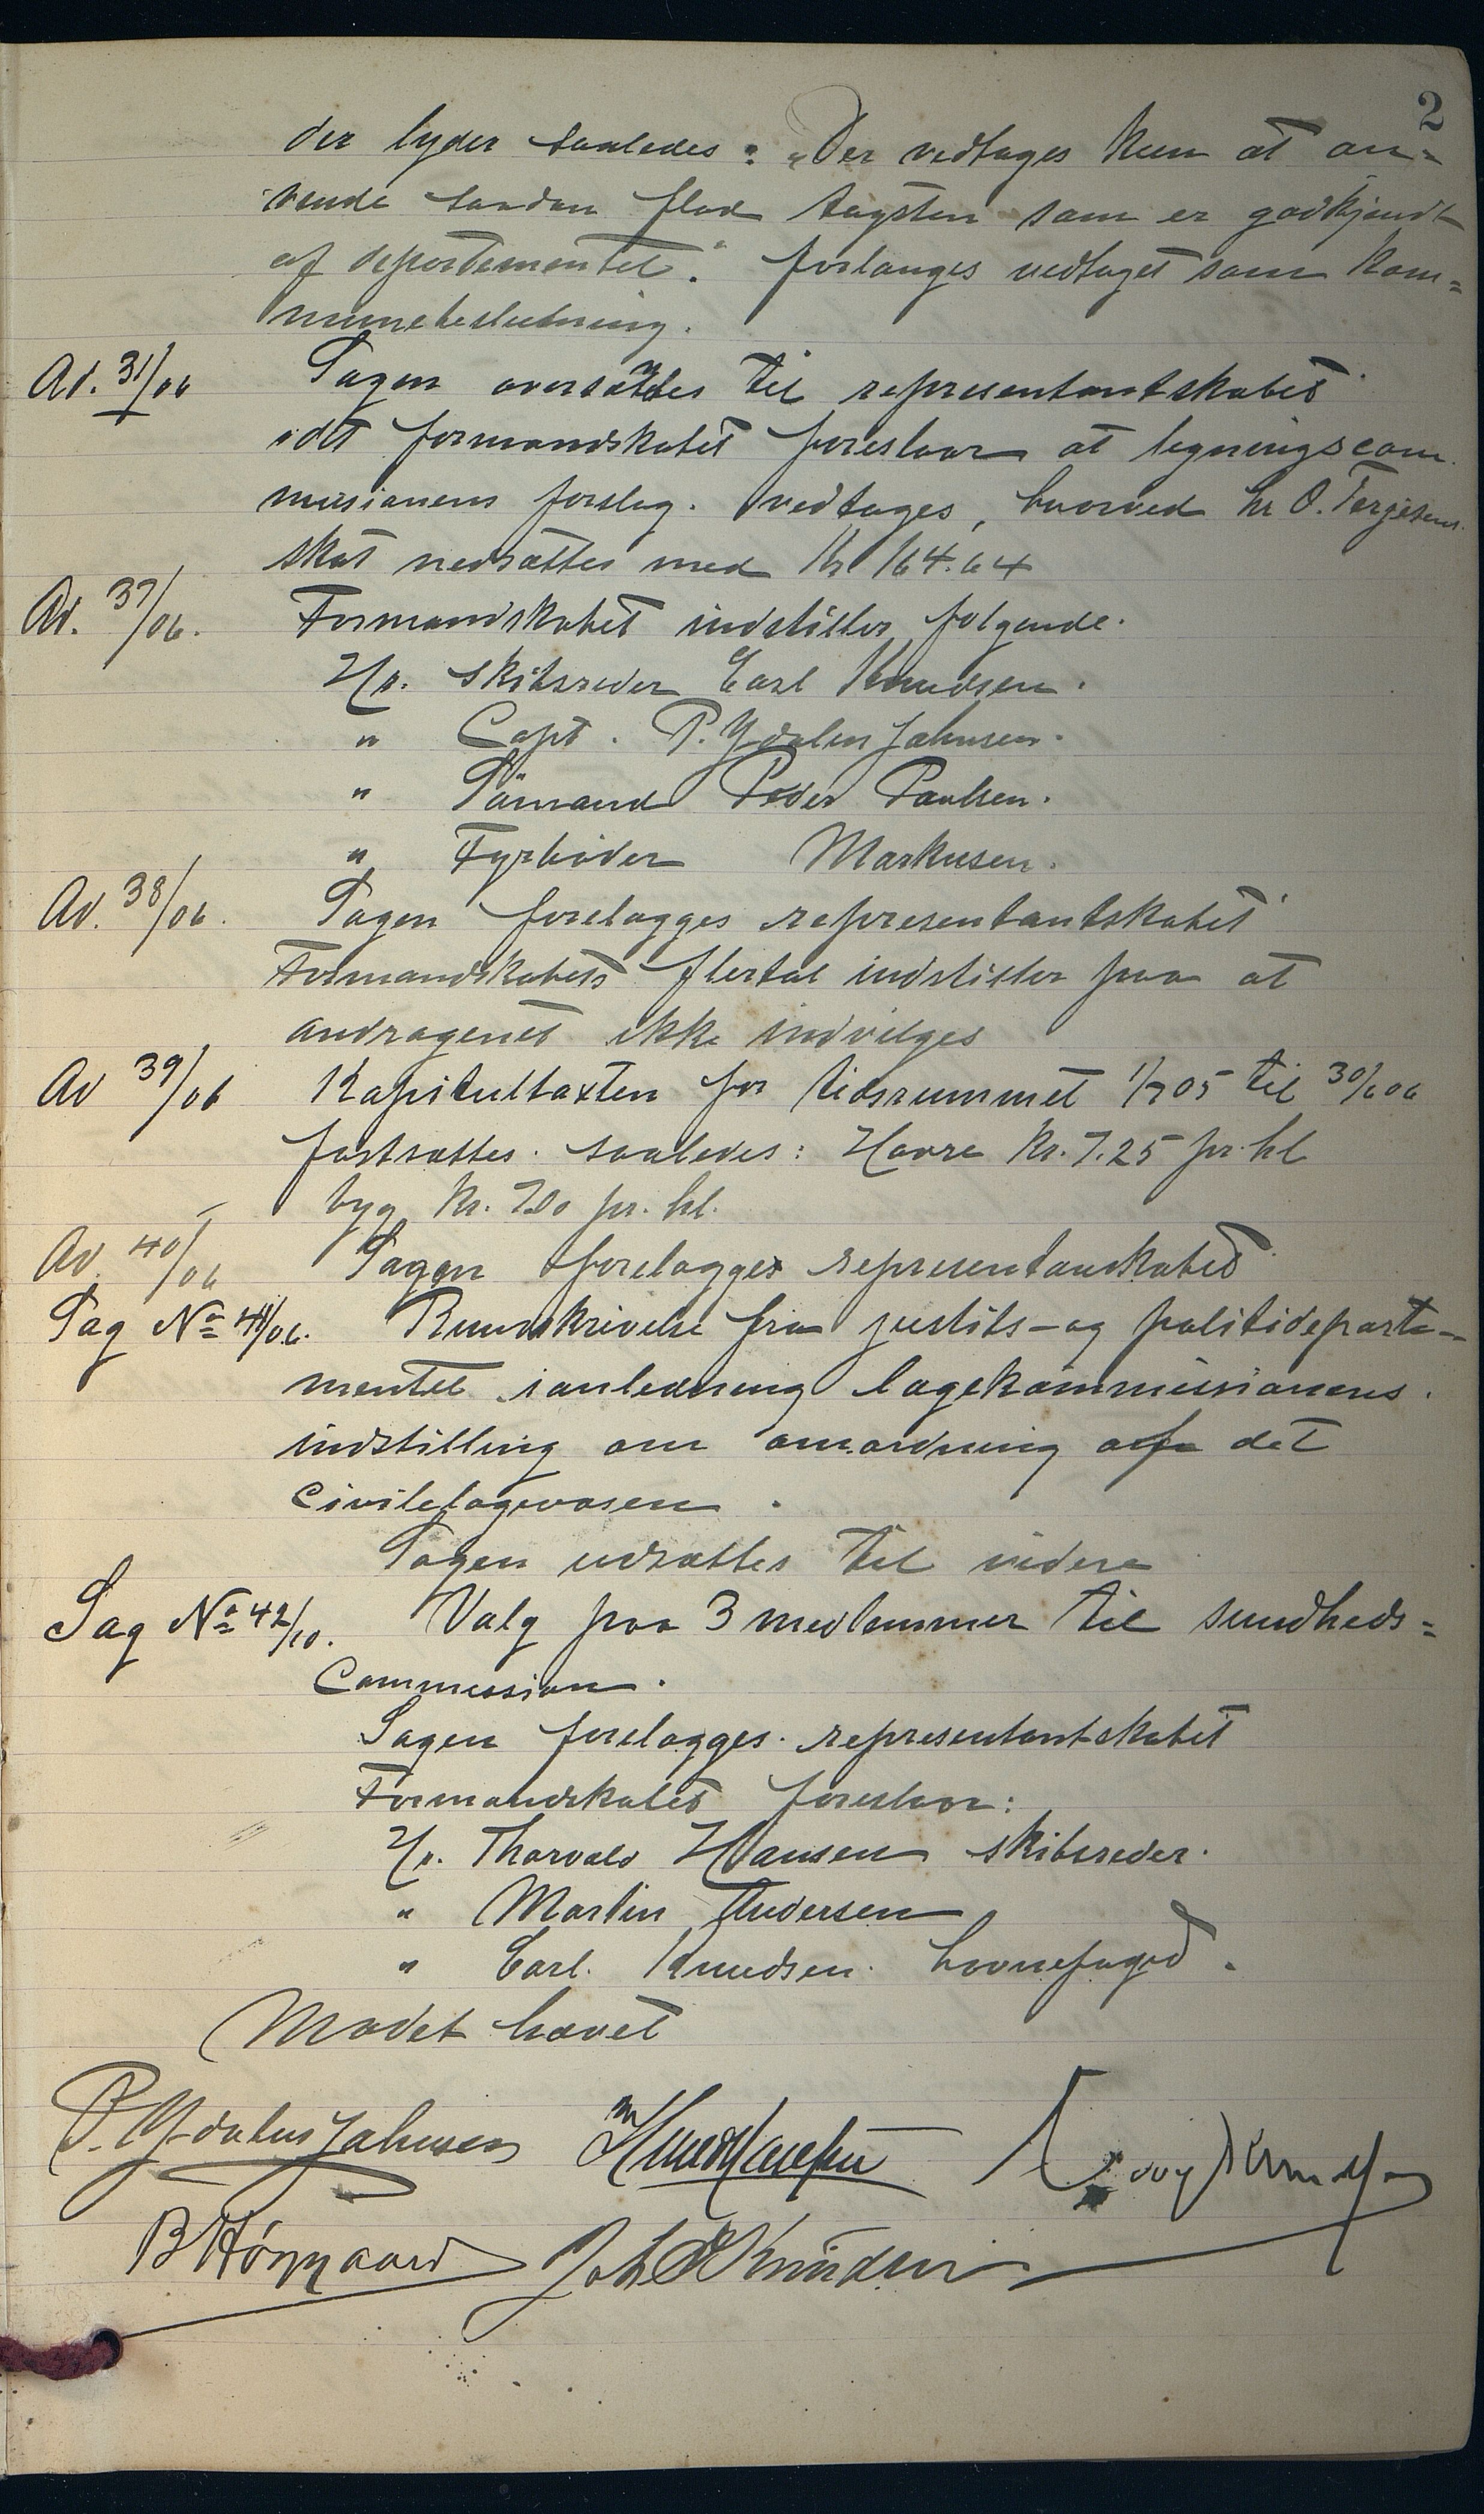 2
der lyder saaledes: "Der vedtages kun at an=
vende saadan flad tagsten som er godkjendt
af departementet." forlanges vedtaget som kom=
munebeslutning.
Ad. 31/06 Sagen oversættes til representantskabet
idt formandskabet foreslaar at ligningscom
missionens forslag. vedtages, hvorved hr O. Terjesens
skat nedsættes med Kr 164.64
Ad. 37/06. Formandskabet indstiller følgende.
Hr. Skibsreder Carl Knudsen.
" Capt. P. Ydalus Jahnsen.
" Sömand Peder Paulsen.
" Fyrbøder Markusen.
Ad. 38/06. Sagen forelægges representantskabet
Formandskabets flertal indstiller paa at
andragenet ikke indvilges
Ad 39/06 Kapiteltaxten for tidsrummet 1/7 05 til 30/6 06
fastsættes. saaledes: Havre Kr. 7.25 pr. hl
byg Kr. 7.00 pr. hl.
Ad. 40/06 Sagen forelægges representanskabet
Sag No 41/06. Rundskrivelse fra justits-og politideparte-
mentet ianledning lægekommissionens.
indstilling om omordning af det
Civilelægevæsen.
Sagen udsættes til videre
Sag No 42/10. Valg paa 3 medlemmer til sundheds=
Commession.
Sagen forelægges. representantskabet
Formandskabet foreslaar:
Hr. Thorvald Hansen skibsreder.
" Martin Andersen
" Carl. Knudsen. havnefoged.
Mødet hævet
P. Ydalus Jahnsen
B Hörgaard Joh E Knudsen